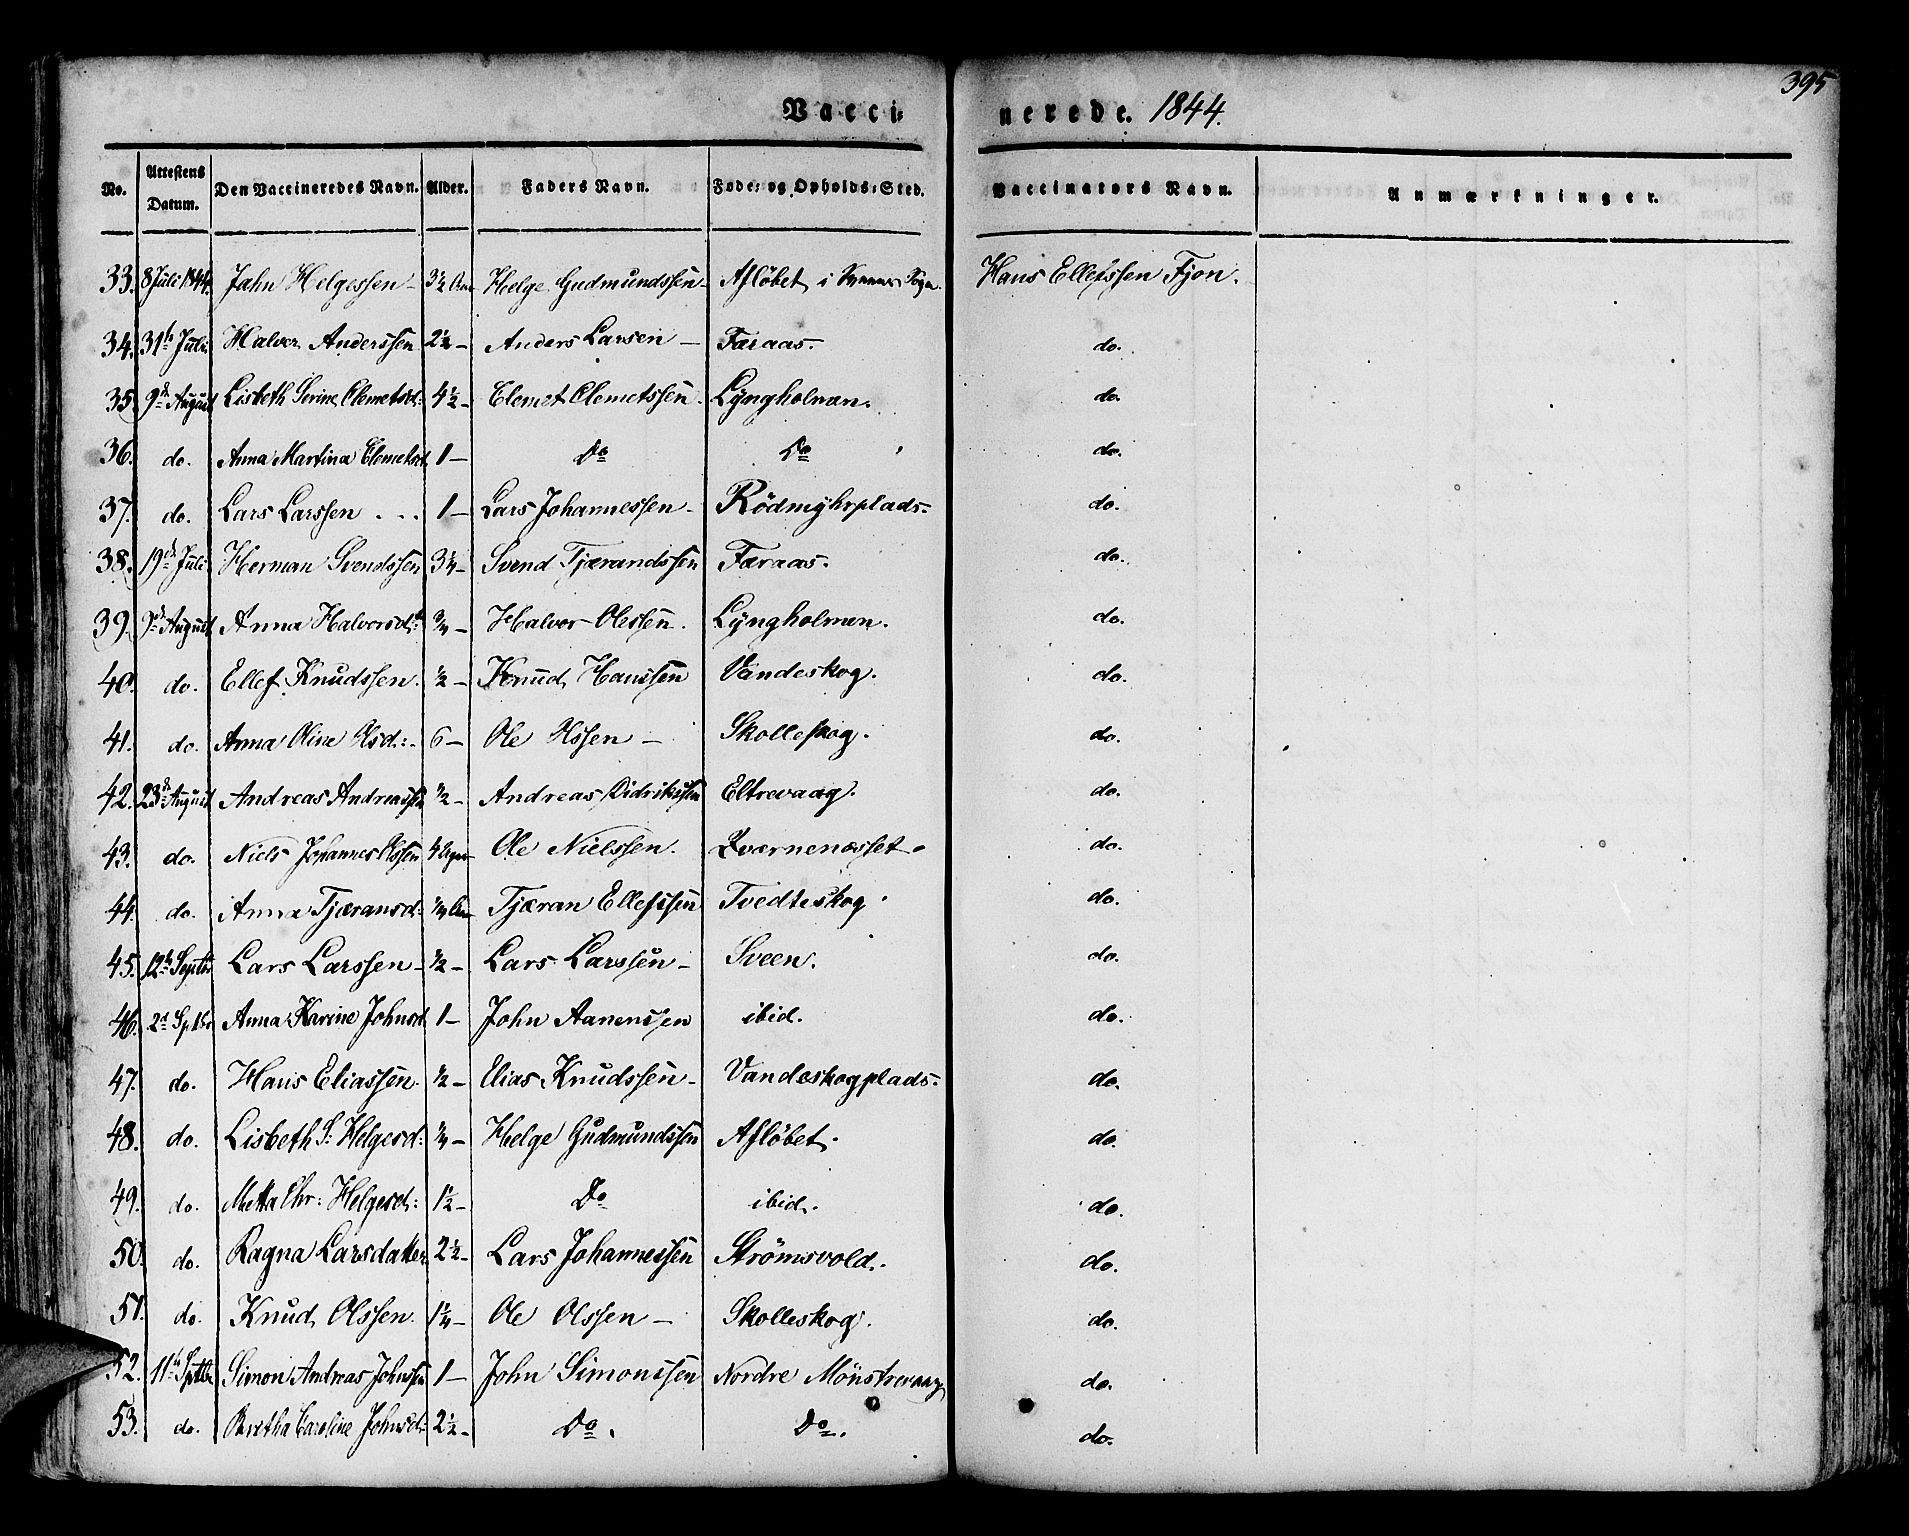 395
Vacci-
nerede. 1844.
No. Attestens Datum. Den Vaccineredes Navn. Alder. Faders Navn. Føde- og Opholds-Sted. Vaccinators Navn. Anmærkninger.
33. 8 Juli 1844. Jahn Helgessen 3½ Helge Gudmundssen Afløbet i Sogn. Hans Ellefssen Fjon.
34. 31te Juli Halver Anderssen 2¼ Anders Larsen Færaas. do.
35. 9de August Lisbeth Serine Clemetsd: 4½ Clemet Clemetssen Lyngholmen. do.
36. do. Anna Martina Clemetsd. 1 Do Do do.
37. do. Lars Larssen 1 Lars Johannessen Rödmyhrplads. do.
38. 19de Juli Herman Svendssen 3¼ Svend Tjærandssen Færaas. do.
39. 9de August Anna Halvorsd: ¾ Halvor Olessen. Lyngholmen. do.
40. do. Ellef Knudssen. ½ Knud Hanssen Vandeskog. do.
41. do. Anna Oline Olsd: 6 Ole Olssen Skolleskog. do.
42. 23de August Andreas Andreassen ½ Andreas Didrikssen Eltrevaag. do.
43. do. Niels Johannes Olssen 4 Uger Ole Nielssen. Qværnenæsset. do.
44. do. Anna Tjæransd: ¼ Tjæran Ellefssen Tvedteskog. do.
45. 12te Septbr Lars Larssen ½ Lars Larssen Sveen. do.
46. 2d Sptbr Anna Karine Johnsd. 1 John Aanenssen ibid. do.
47. do. Hans Eliassen. ½ Elias Knudssen Vandeskogplads. do.
48. do. Lisbeth S: Helgesd: ¼ Helge Gudmundssen Afløbet. do.
49. do. Metta Chr: Helgesd: 1½ Do ibid. do.
50. do. Ragna Larsdatter 2½ Lars Johannessen Strømsvold. do.
51. do. Knud Olssen. 1¼ Ole Olssen Skolleskog. do.
52. 11te Sptbr Simon Andreas Johnssen 1 John Simonssen Nordre Mönstrevaag do.
53. do. Bertha Caroline Johnsd: 2½ Do. Do. do.